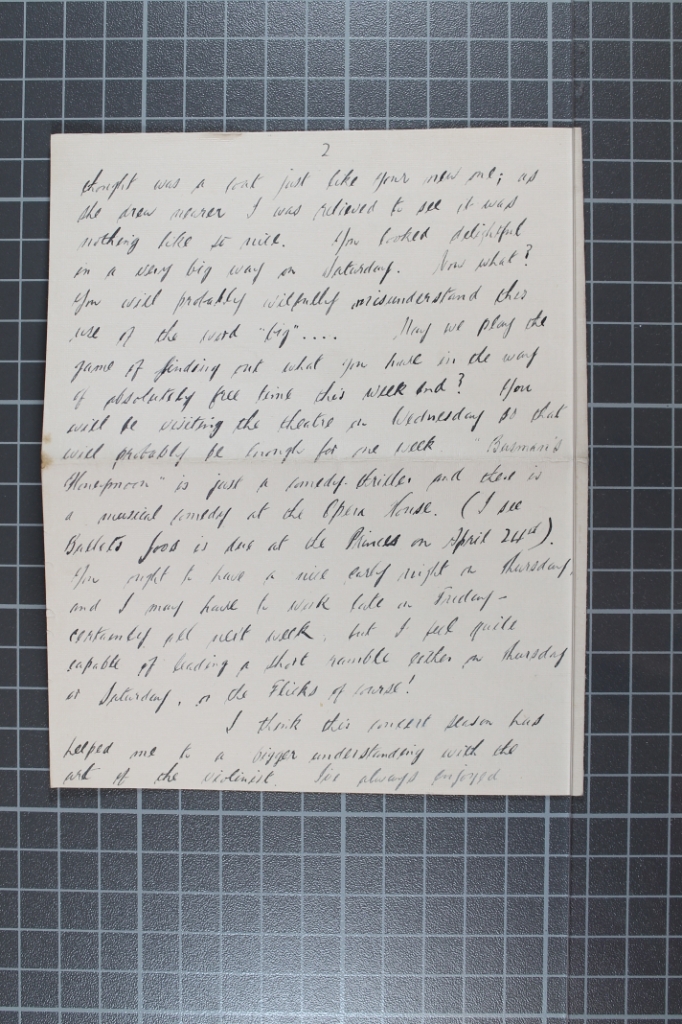 2
thought was a coat just like your new one; as
she drew nearer I was relieved to see it was
nothing like so nice. You looked delightful
in a very big way on Saturday. Now what?
You will probably wilfully misunderstand this
use of the word "big".... May we play the
game of finding out what you have in the way
of absolutely free time this week end? You
will be visiting the theatre on Wednesday so that
will probably be enough for one week. "Busman's
Honeymoon" is just a comedy-thriller and there is
a musical comedy at the Opera House. (I see
Ballets Jooss is due at the Princes on April 24th).
You ought to have a nice early night on Thursday,
and I may have to work late on Friday –
certainly all next week, but I feel quite
capable of leading a short ramble either on Thursday
or Saturday, or the Flicks of course!
I think this concert season has
helped me to a bigger understanding with the
art of the violinist. I've always enjoyed